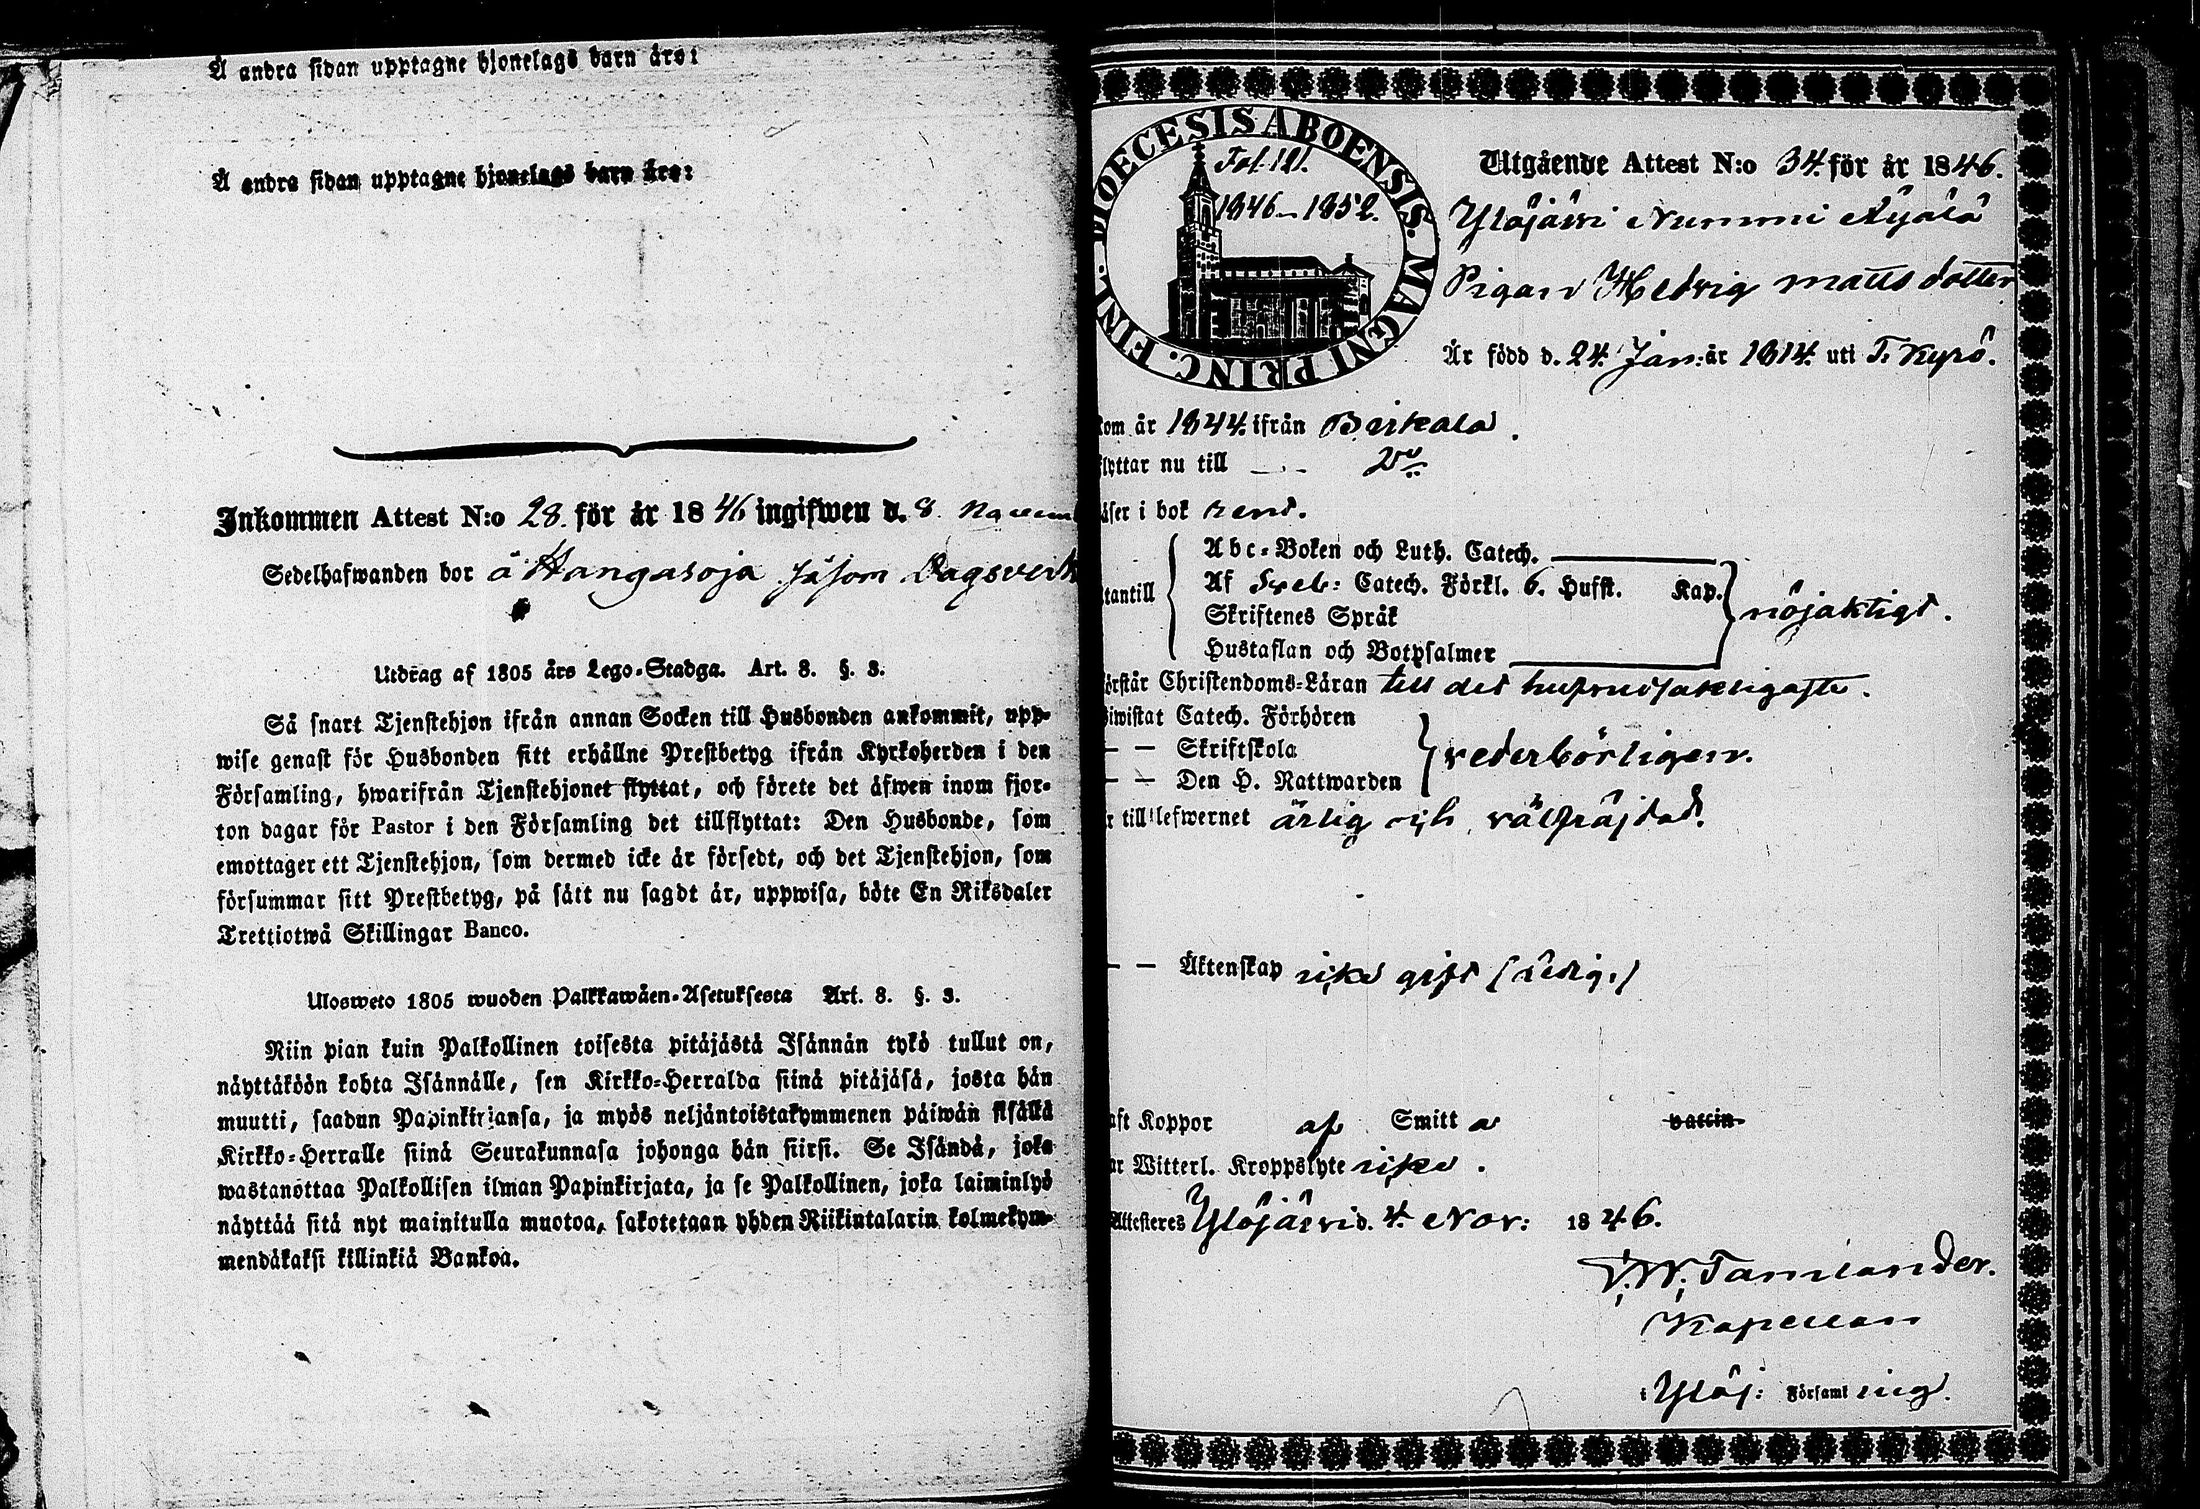 Å andra sidan upptagne hjonelags barn äro:
Å andra sidan upptagne hjonelags barn äro:
Inkommen Attest N:o 28. för år 1846 ingifwen d. 8. Novem
Sedelhafwanden bor å Hangasoja såsom Dagsverk
Utdrag af 1805 års Lego-Stadga. Art. 8. §. 3.
Så snart Tjenstehjon ifrån annan Socken till Husbonden ankommit, upp-
wise genast för Husbonden sitt erhållne Prestbetyg ifrån Kyrkoherden i den
Församling, hwarifrån Tjenstehjonet flyttat, och förete det äfwen inom fjor-
ton dagar för Pastor i den Församling det tillflyttat: Den Husbonde, som
emottager ett Tjenstehjon, som dermed icke är försedt, och det Tjenstehjon, som
försummar sitt Prestbetyg, på sätt nu sagdt är, uppwisa, böte En Riksdaler
Trettiotwå Skillingar Banco.
Ulosweto 1805 wuoden Palkkawäen-Asetuksesta Art. 8. §. 3.
Niin pian kuin Palkollinen toisesta pitäjästä Isännän tykö tullut on,
näyttäköön kohta Isännälle, sen Kirkko-Herralda siinä pitäjäsä, josta hän
muutti, saadun Papinkirjansa, ja myös neljäntoistakymmenen päiwän sisällä
Kirkko-Herralle siinä Seurakunnasa johonga hän siirsi. Se Isändä, joka
wastanottaa Palkollisen ilman Papinkirjata, ja se Palkollinen, joka laiminlyö
näyttää sitä nyt mainitulla muotoa, sakotetaan yhden Riikintalarin kolmekym-
mendäkaksi killinkiä Bankoa.
DIOECESIS ABOENSIS. MAGNI PRINC. FINL.
Fol. 181.
1846–1852.
Utgående Attest N:o 34. för år 1846.
Ylöjärvi Nummi
Pigan Hedvig Mattsdotter
Är född d. 24. Jan: år 1814. uti T. Kyrö.
kom år 1844. ifrån Birkala.
flyttar nu till D:o
äser i bok rent.
Abc-Boken och Luth. Catech.
utantill Af Sveb: Catech. Förkl. 6. Hufst. Kap. nöjaktigt.
Skriftenes Språk
Hustaflan och Botpsalmer
örstår Christendoms-Läran till det hufvudsakligaste.
biwistat Catech. Förhören
— — Skriftskola vederbörligen.
— — Den H. Nattwarden
r till lefwernet ärlig och välfräjdad.
— — Äktenskap icke gift (ledig.)
aft Koppor af Smitta vaccin
ar Witterl. Kroppslyte icke.
Attesteres Ylöjärvi d. 4. Nov: 1846.
Tamlander.
Kapellan
i Ylöj: Församling.